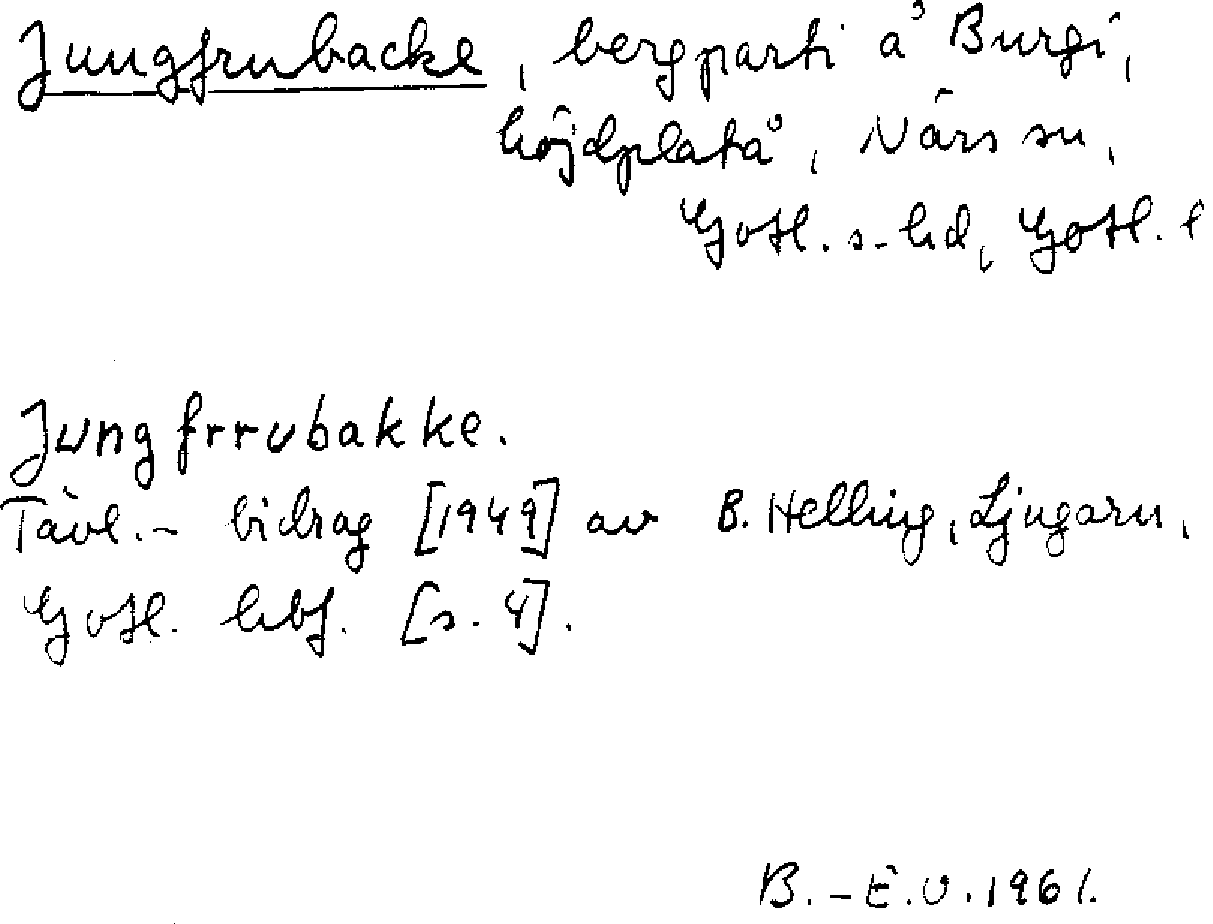 Jungfrubacke, bergparti å Burgi,
höjdplatå, När sn,
Gotl. s. hd, Gotl. l
Jungfrrubakke.
Tävl.- bidrag [1949] av B. Helling, Ljugarn,
Gotl. hbf. [s. 4].
B.-E.U. 1961.